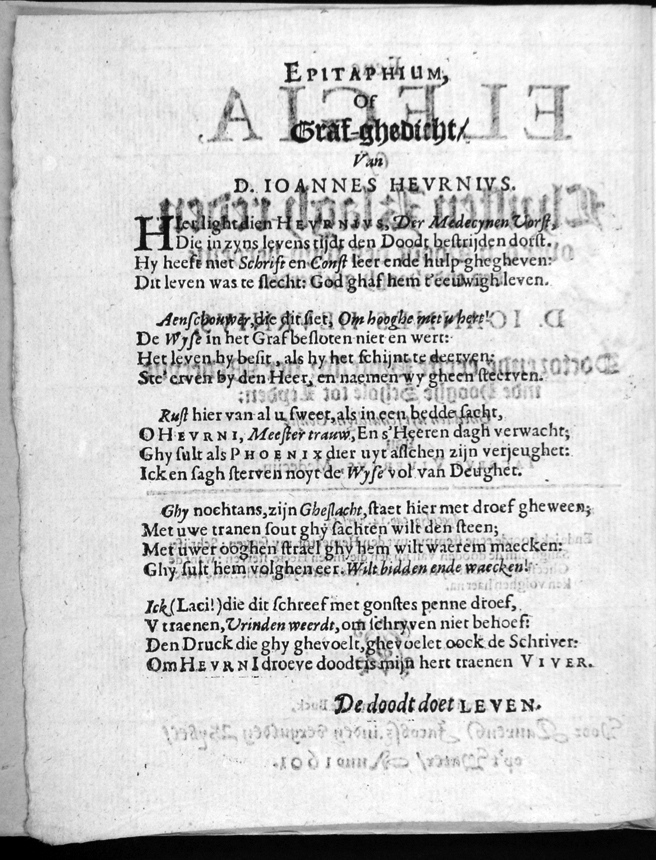 EPITAPHIUM,
Of
Graf-ghedicht/
Van
D. IOANNES HEVRNIVS.
HIer light dien HEVRNIVS, Der Medecynen Vorst,
Die in zyns levens tijdt den Doodt bestrijden dorst.
Hy heeft met Schrift en Const leer ende hulp ghegheven:
Dit leven was te slecht: God ghaf hem t'eeuwigh leven.
Aenschouwer, die dit siet, Om hooghe met u hert!
De Wyse in het Graf besloten niet en wert:
Het leven hy besit, als hy het schijnt te deerven:
Ste'erven by den Heer, en naemen wy gheen steerven.
Rust hier van al u sweet, als in een bedde sacht,
O HEVRNI, Meester trauw, En s'Heeren dagh verwacht;
Ghy sult als PHOENIX dier uyt asschen zijn verjeught:
Ick en sagh sterven noyt de Wyse vol van Deught.
Ghy nochtans, zijn Gheslacht, staet hier met droef gheween;
Met uwe tranen sout ghy sachten wilt den steen;
Met uwer ooghen strael ghy hem wilt waerem maecken:
Ghy sult hem volghen eer. Wilt bidden ende waecken!
Ick (Laci!) die dit schreef met gonstes penne droef,
V traenen, Vrinden weerdt, om schryven niet behoef:
Den Druck die ghy ghevoelt, ghevoelet oock de Schriver:
Om HEVRNI droeve doodt is mijn hert traenen VIVER.
De doodt doet LEVEN.